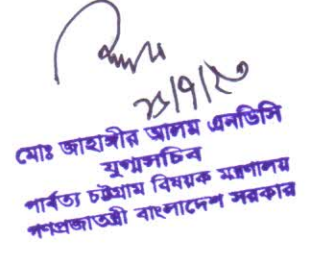 ২৫/৭/২৩
মোঃ জাহাঙ্গীর আলম এনডিসি
যুগ্মসচিব
পার্বত্য চট্টগ্রাম বিষয়ক মন্ত্রণালয়
গণপ্রজাতন্ত্রী বাংলাদেশ সরকার